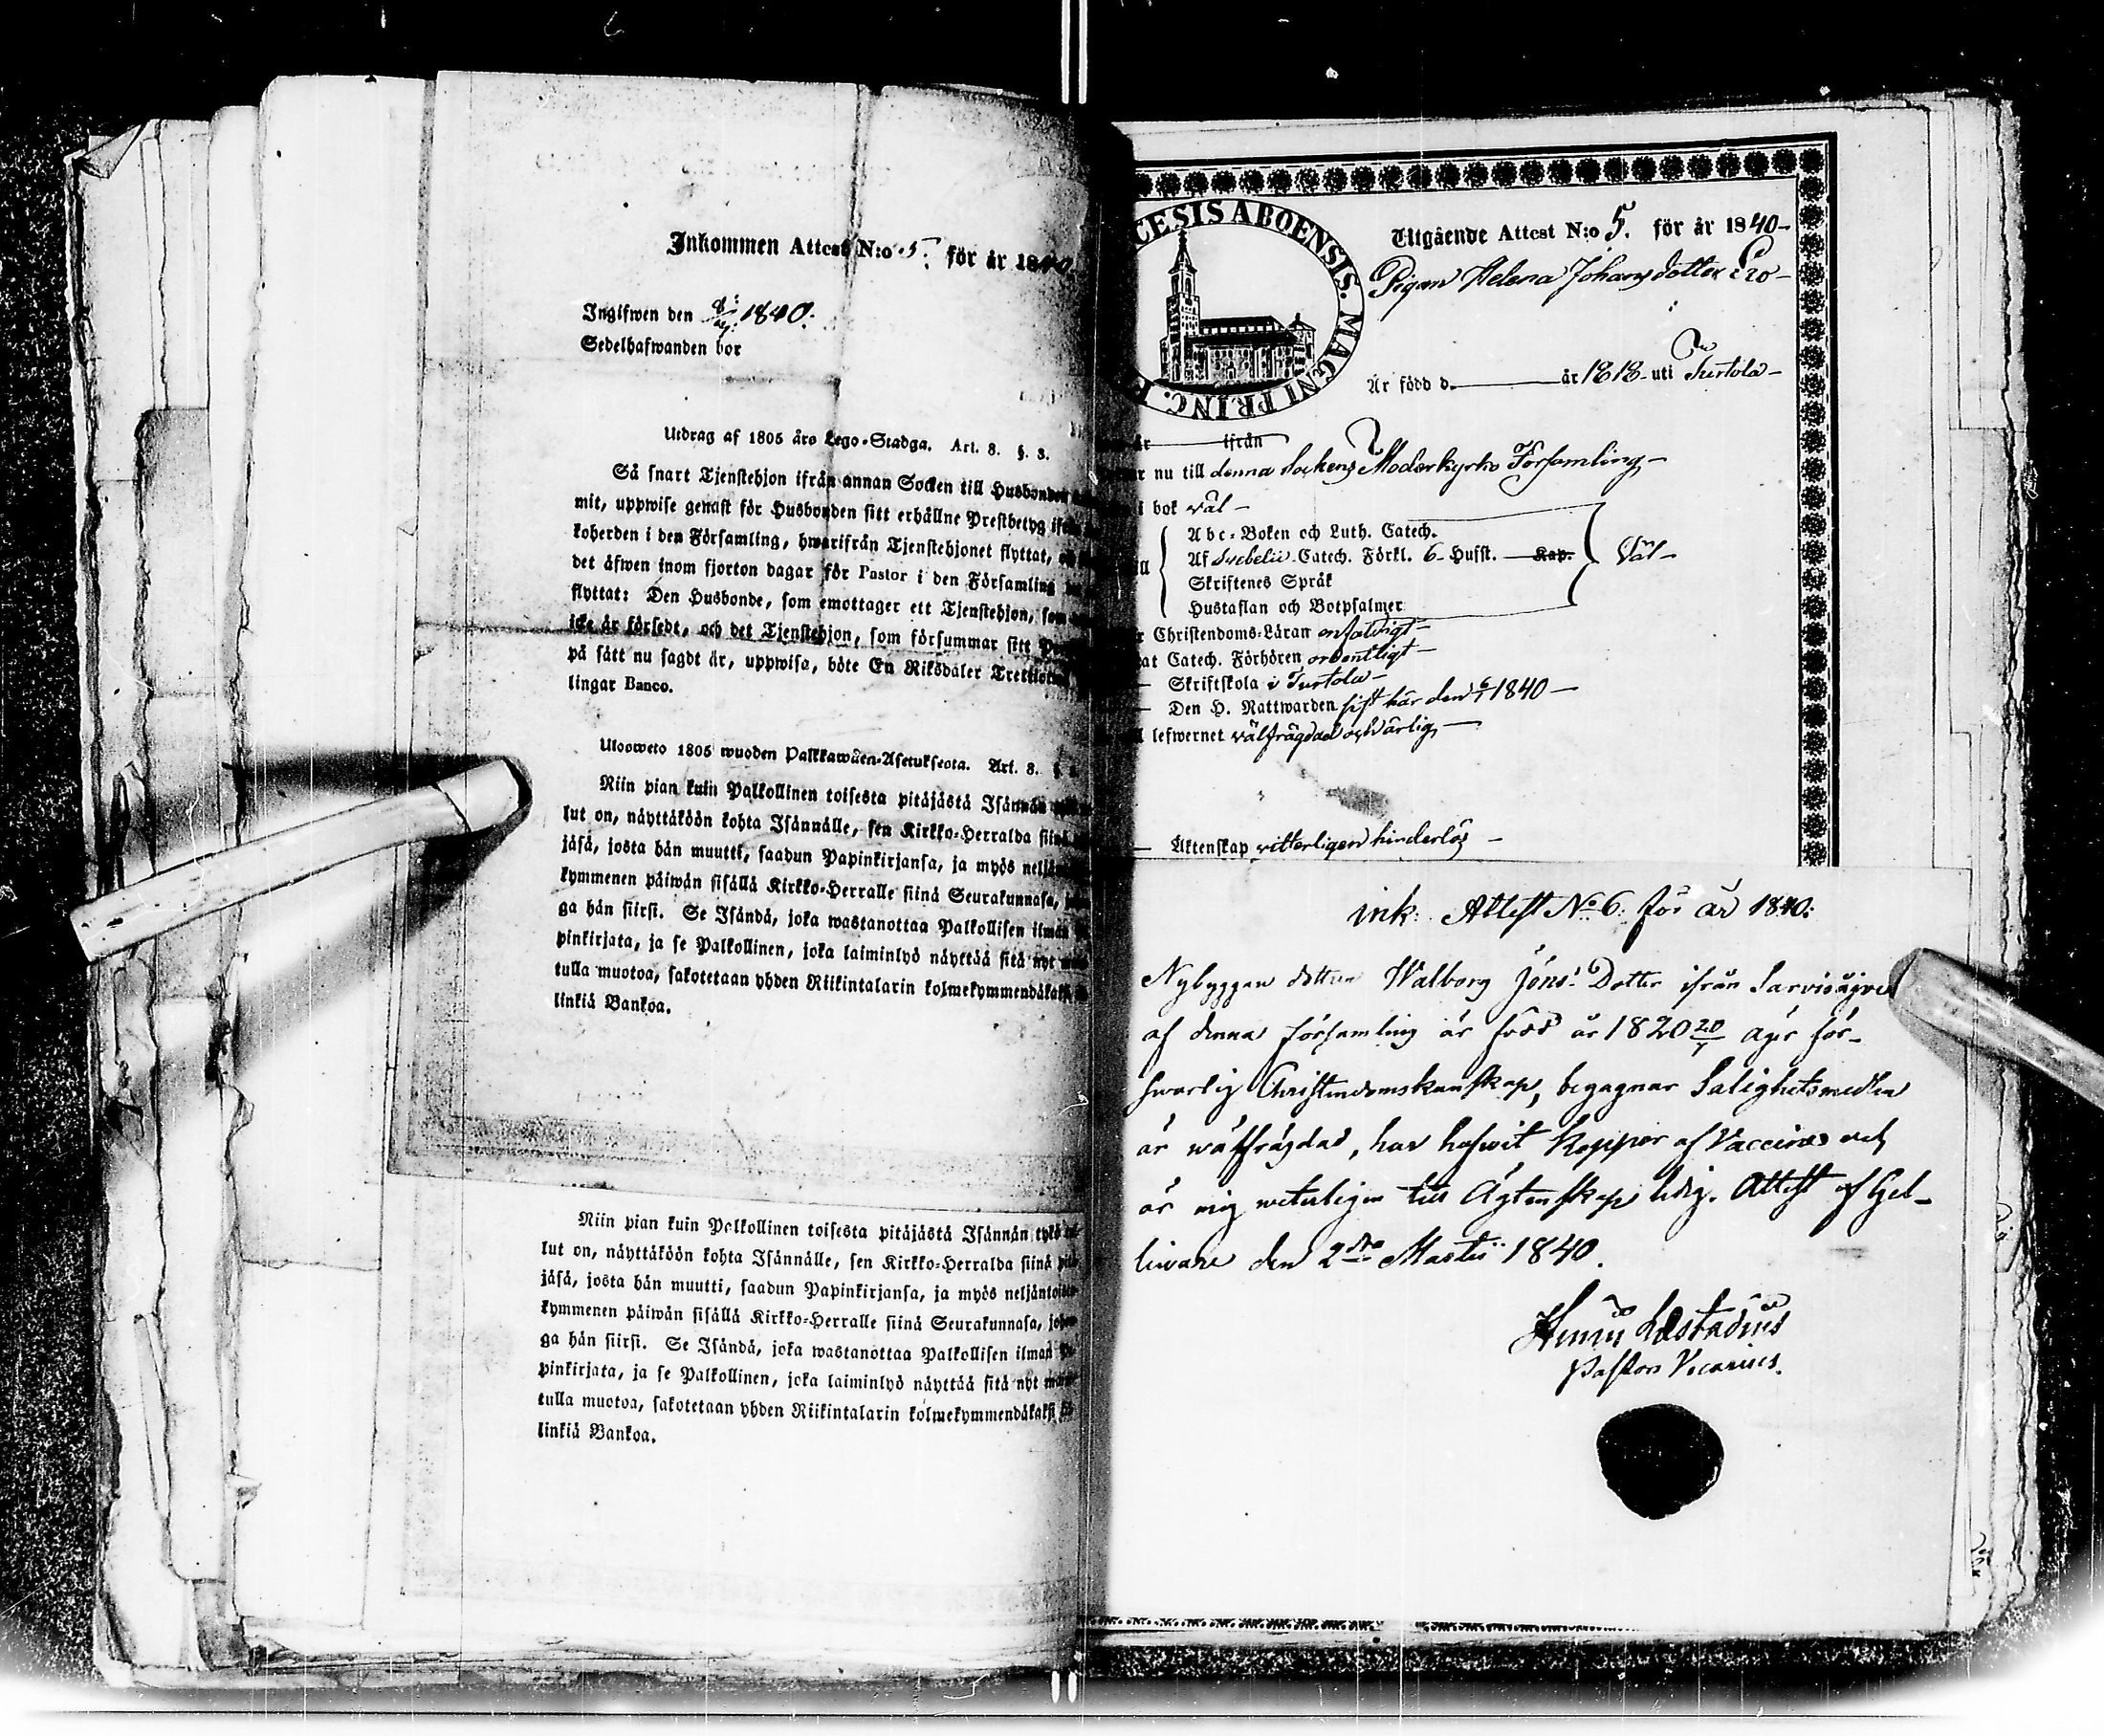 Inkommen Attest N:o 5. för år 1840
Ingifwen den 1840.
Sedelhafwanden bor
Utdrag af 1805 års Lego-Stadga. Art. 8. §. 3.
Så snart Tjenstehjon ifrån annan Socken till Husbonden
mit, uppwise genast för Husbonden sitt erhållne Prestbetyg
koherden i den Församling, hwarifrån Tjenstehjonet flyttat,
det äfwen inom fjorton dagar för Pastor i den Församling
flyttat: Den Husbonde, som emottager ett Tjenstehjon, som
icke är försedt, och det Tjenstehjon, som försummar sitt
på sätt nu sagdt är, uppwisa, böte En Riksdaler
lingar Banco.
Ulosweto 1805 wuoden Palkkawäen-Asetuksesta. Art. 8. §
Niin pian kuin Palkollinen toisesta pitäjästä Isännän
lut on, näyttäköön kohta Isännälle, sen Kirkko-Herralda siinä
jäsä, josta hän muutti, saadun Papinkirjansa, ja myös
kymmenen päiwän sisällä Kirkko-Herralle siinä Seurakunnasa,
ga hän siirsi. Se Isändä, joka wastanottaa Palkollisen ilman
pinkirjata, ja se Palkollinen, joka laiminlyö näyttää sitä nyt
tulla muotoa, sakotetaan yhden Riikintalarin kolmekymmendäkaksi
linkiä Bankoa.
Niin pian kuin Palkollinen toisesta pitäjästä Isännän tykö
lut on, näyttäköön kohta Isännälle, sen Kirkko-Herralda siinä
jäsä, josta hän muutti, saadun Papinkirjansa, ja myös neljäntoista
kymmenen päiwän sisällä Kirkko-Herralle siinä Seurakunnasa,
ga hän siirsi. Se Isändä, joka wastanottaa Palkollisen ilman
pinkirjata, ja se Palkollinen, joka laiminlyö näyttää sitä nyt
tulla muotoa, sakotetaan yhden Riikintalarin kolmekymmendäkaksi
linkiä Bankoa.
CESIS ABOENSIS. MAGNI PRINC. F
Utgående Attest N:o 5. för år 1840-
Pigan Helena Johansdotter
Är född d. år 1818 uti Turtola-
år ifrån
nu till denna Sockens Moderkyrko Församling-
i bok väl-
Abc-Boken och Luth. Catech.
Af Svebelii Catech. Förkl. 6 Hufst. Kap. Väl-
Skriftenes Språk
Hustaflan och Botpsalmer
Christendoms-Läran enfaldigt-
at Catech. Förhören ordentligt-
Skriftskola i Turtola-
Den H. Nattwarden sist här den 6/1 1840-
lefwernet välfrägdad och ärlig-
Äktenskap vitterligen hinderlös-
ink: Attest No 6: för år 1840:
Nybyggare dottren Walborg Jöns Dotter ifrån
af denna församling är född år 1820 äger för-
swarlig Christendomskunskap, begagnar Salighetsmedlen
är wälfrägdad, har hafwit koppor af Vaccine och
är mig weterligen till Ägtenskap ledig. Attest af Gel-
liware den 2dra Martii 1840.
Læstadius
Pastor Vicarius.